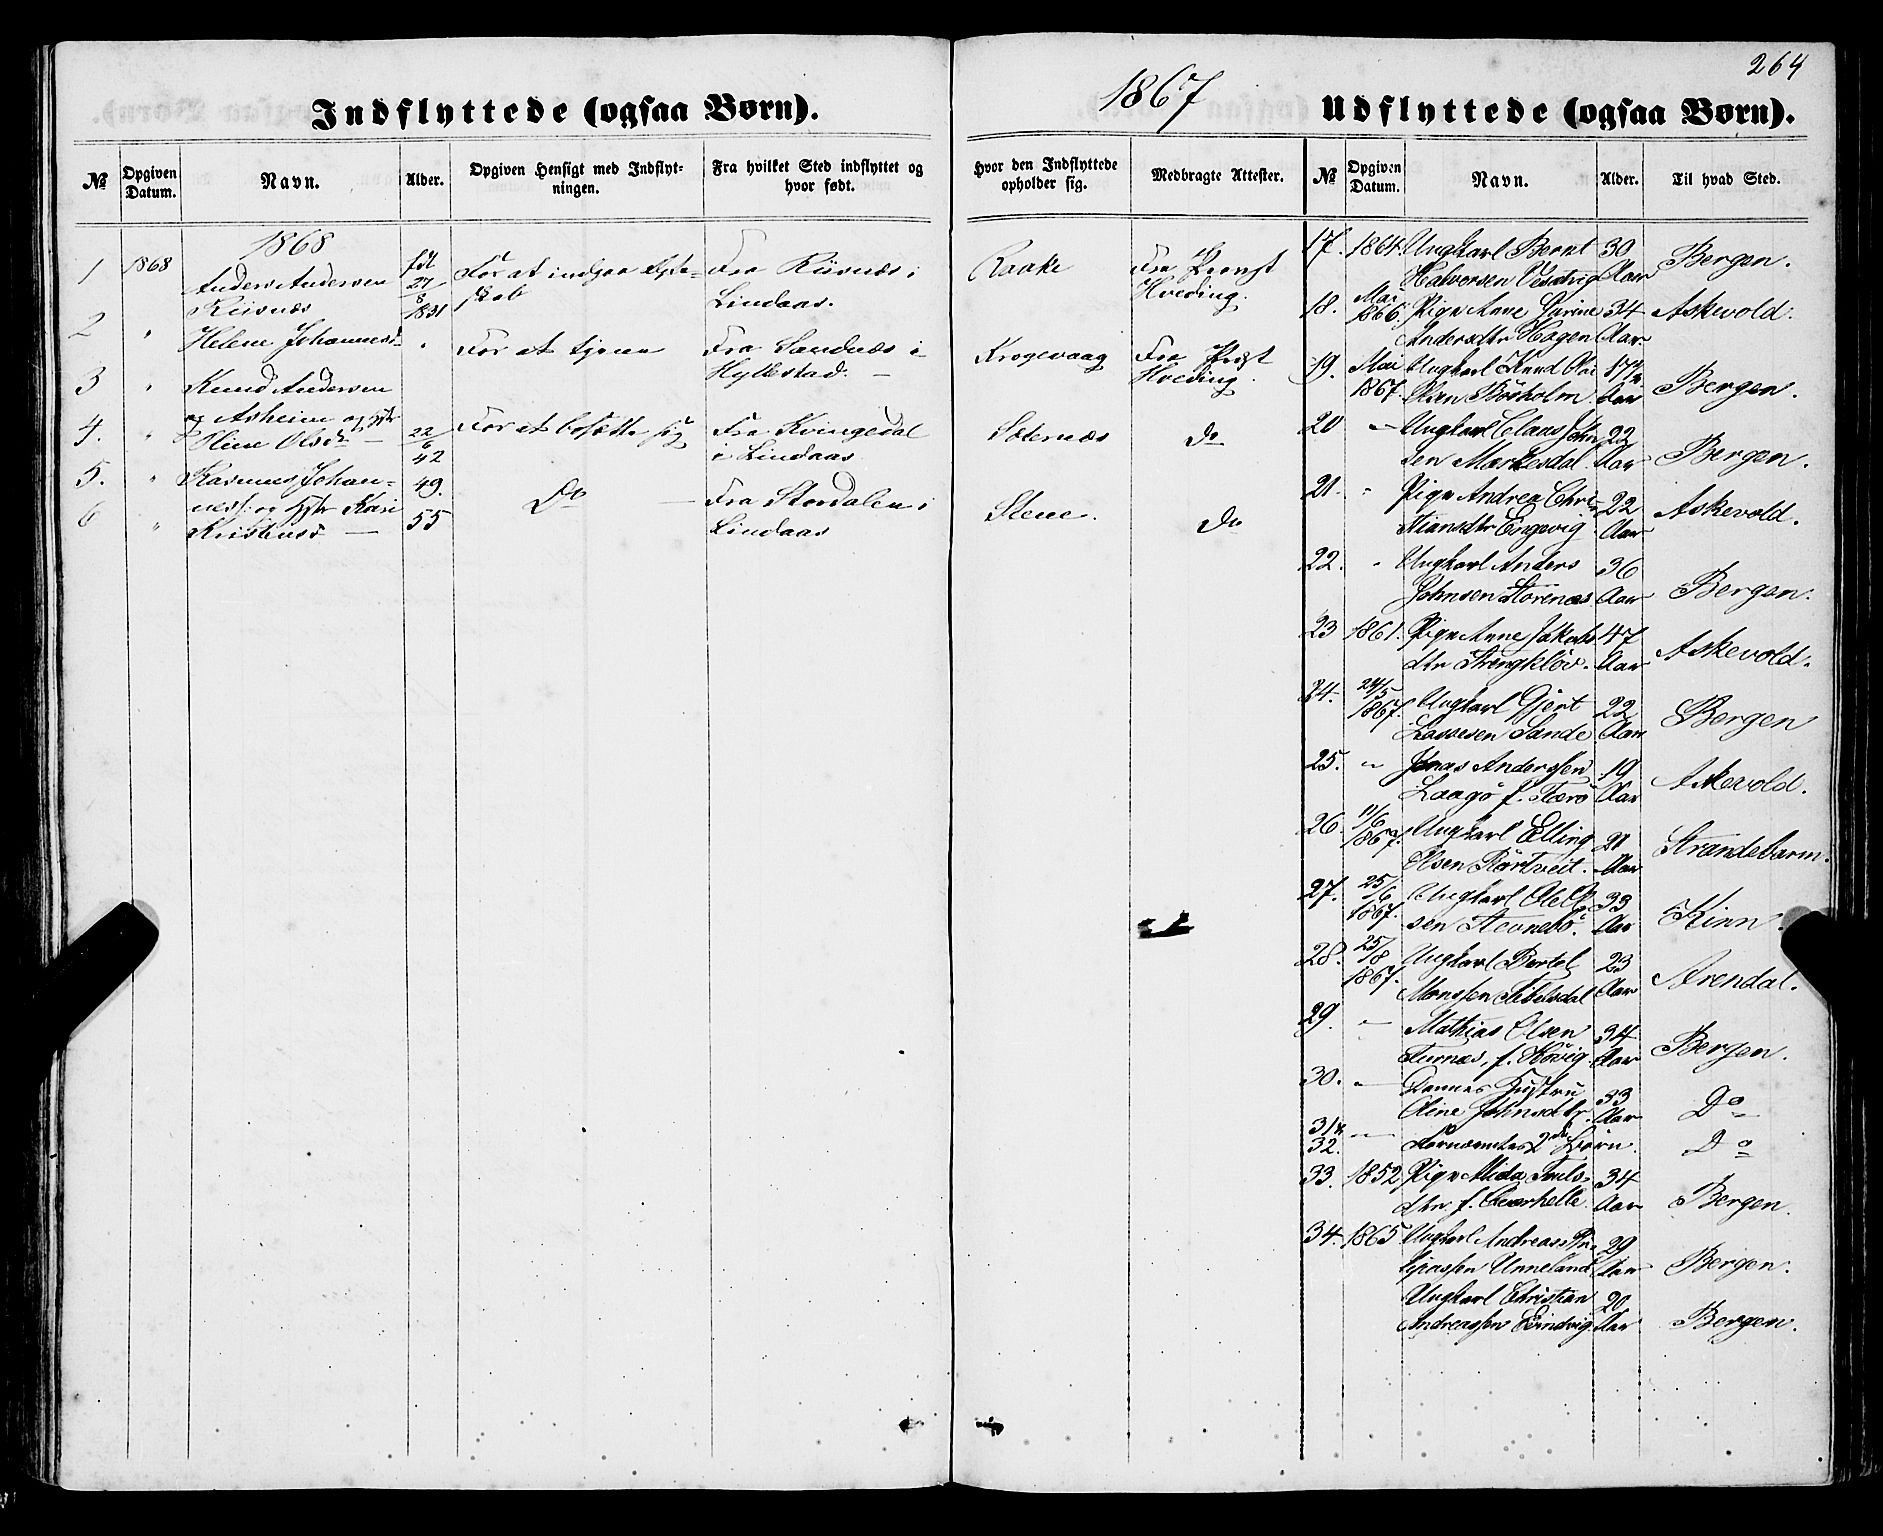 264
1867
Indflyttede (ogsaa Børn).
Udflyttede (ogsaa Børn).
№
Opgiven Datum.
Navn.
Alder.
Opgiven Hensigt med Indflyt-
ningen.
Fra hvilket Sted indflyttet og
hvor født.
Hvor den Indflyttede
opholder sig.
Medbragte Attester.
№
Opgiven Datum.
Navn.
Alder.
Til hvad Sted.
1868
1 1868 Anders Andersen født 27/8 1831 For at indgaa Ægte- Fra Riisnæs i Raake Fra Provst
Riisnæs skab Lindaas. Hveding.
2 " Helene Johannesd. " For at tjene Fra Sandnæs i Krogevaag Fra Provst
Hyllestad. Hveding.
3 " Knud Andersen
og
4. " Oline Olsd 22/6 42 For at bosætte sig Fra Kvingedal Sæternæs Do
i Lindaas
5. " Rasmus Johan- 49. Do Fra Stordalen i Stene. Do
nes. og Kari
6 " Kristensd 55 Lindaas
17. 1864. Ungkarl Bernt 30 Bergen.
Halvorsen Aar
18. Mai 1866. Pige Anne Karine 34 Askevold.
Andersdtr Hagen Aar
19. Mai Ungkarl Knud 17½ Bergen.
1867. Olsen Aar
20 " Ungkarl Claus John 22 Bergen.
sen Markesdal. Aar
21. " Pige Andrea Chri- 22 Askevold.
stiansdtr Engevig Aar
22. " Ungkarl Anders 36 Bergen.
Johnsen Storenæs Aar
23 1861. Pige Anne Jakobs 47 Askevold.
dtr Strengkløv. Aar
24. 24/5 1867. Ungkarl Gjert 22 Bergen
Lassesen Sande Aar
25. " Jonas Anderssen 19 Askevold.
Laagø f. Færø Aar
26. 11/6 1867. Ungkarl Elling 21 Strandebarm.
Olsen Rørtveit. Aar
27. 25/6 1867. Ungkarl Ole 33 Kinn.
sen Stevnebø. Aar
28. 25/8 1867. Ungkarl Bertel 23 Arendal.
Monssen Aar
29. " Mathias Olsen 34 Bergen.
Furnæs, f. Høvig Aar
30. " Sammes Hustru 33 Do
Oline Johnsdtr. Aar
31 &
32. " Fornævntes 2de Børn. Do
33. 1852 Pige 34 Bergen.
dtr f. Aar
34. 1865 Ungkarl Andreas 29 Bergen.
Unneland Aar
Ungkarl Christian 20 Bergen.
Andreassen Eindvig Aar